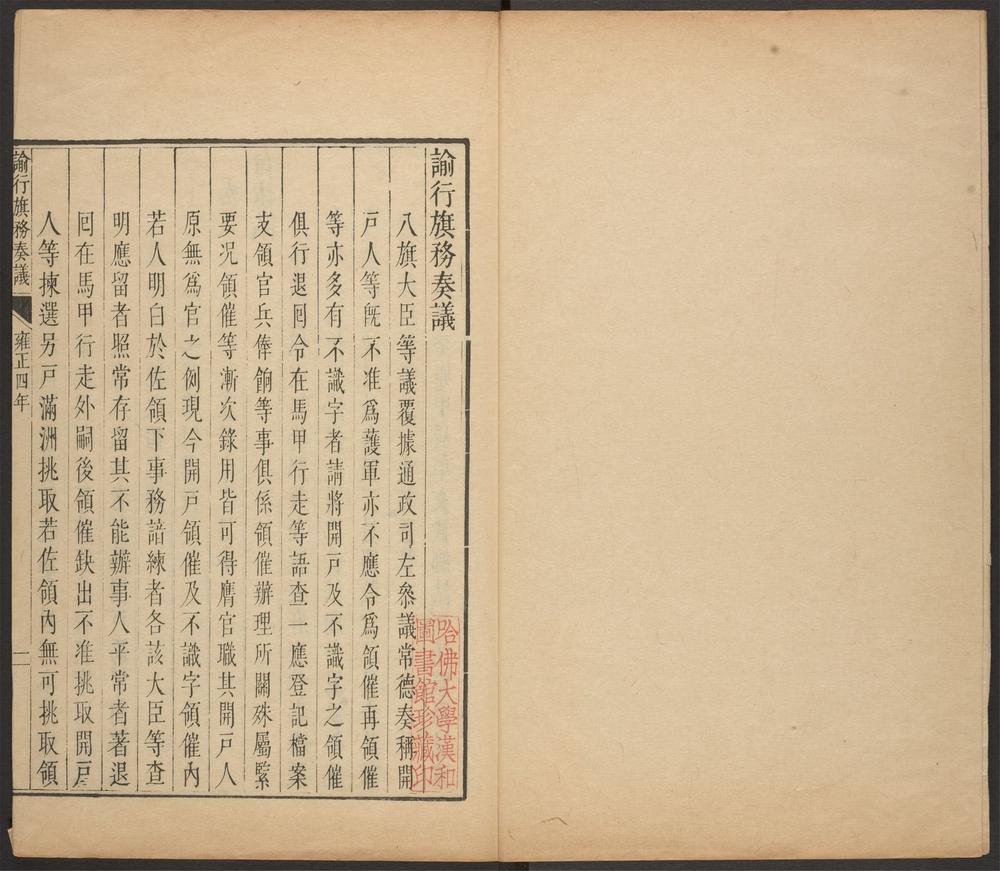 諭行旗務奏議
八旗大臣等議覆據通政司左叅議常德奏稱開
戶人等旣不准爲護軍亦不應令爲領催再領催
等亦多有不識字者請將開戶及不識字之領催
俱行退囘令在馬甲行走等語查一應登記檔案
支領官兵俸餉等事俱係領催辦理所關殊屬緊
要况領催等漸次錄用皆可得膺官職其開戶人
原無爲官之例現今開戶領催及不識字領催內
若人明白於佐領下事務諳練者各該大臣等查
明應留者照常存留其不能辦事人平常者著退
囘在馬甲行走外嗣後領催缺出不准挑取開戶
人等揀選另戶滿洲挑取若佐領內無可挑取領
諭行旗務奏議
雍正四年
一
哈佛大學漢和
圖書館珍藏印